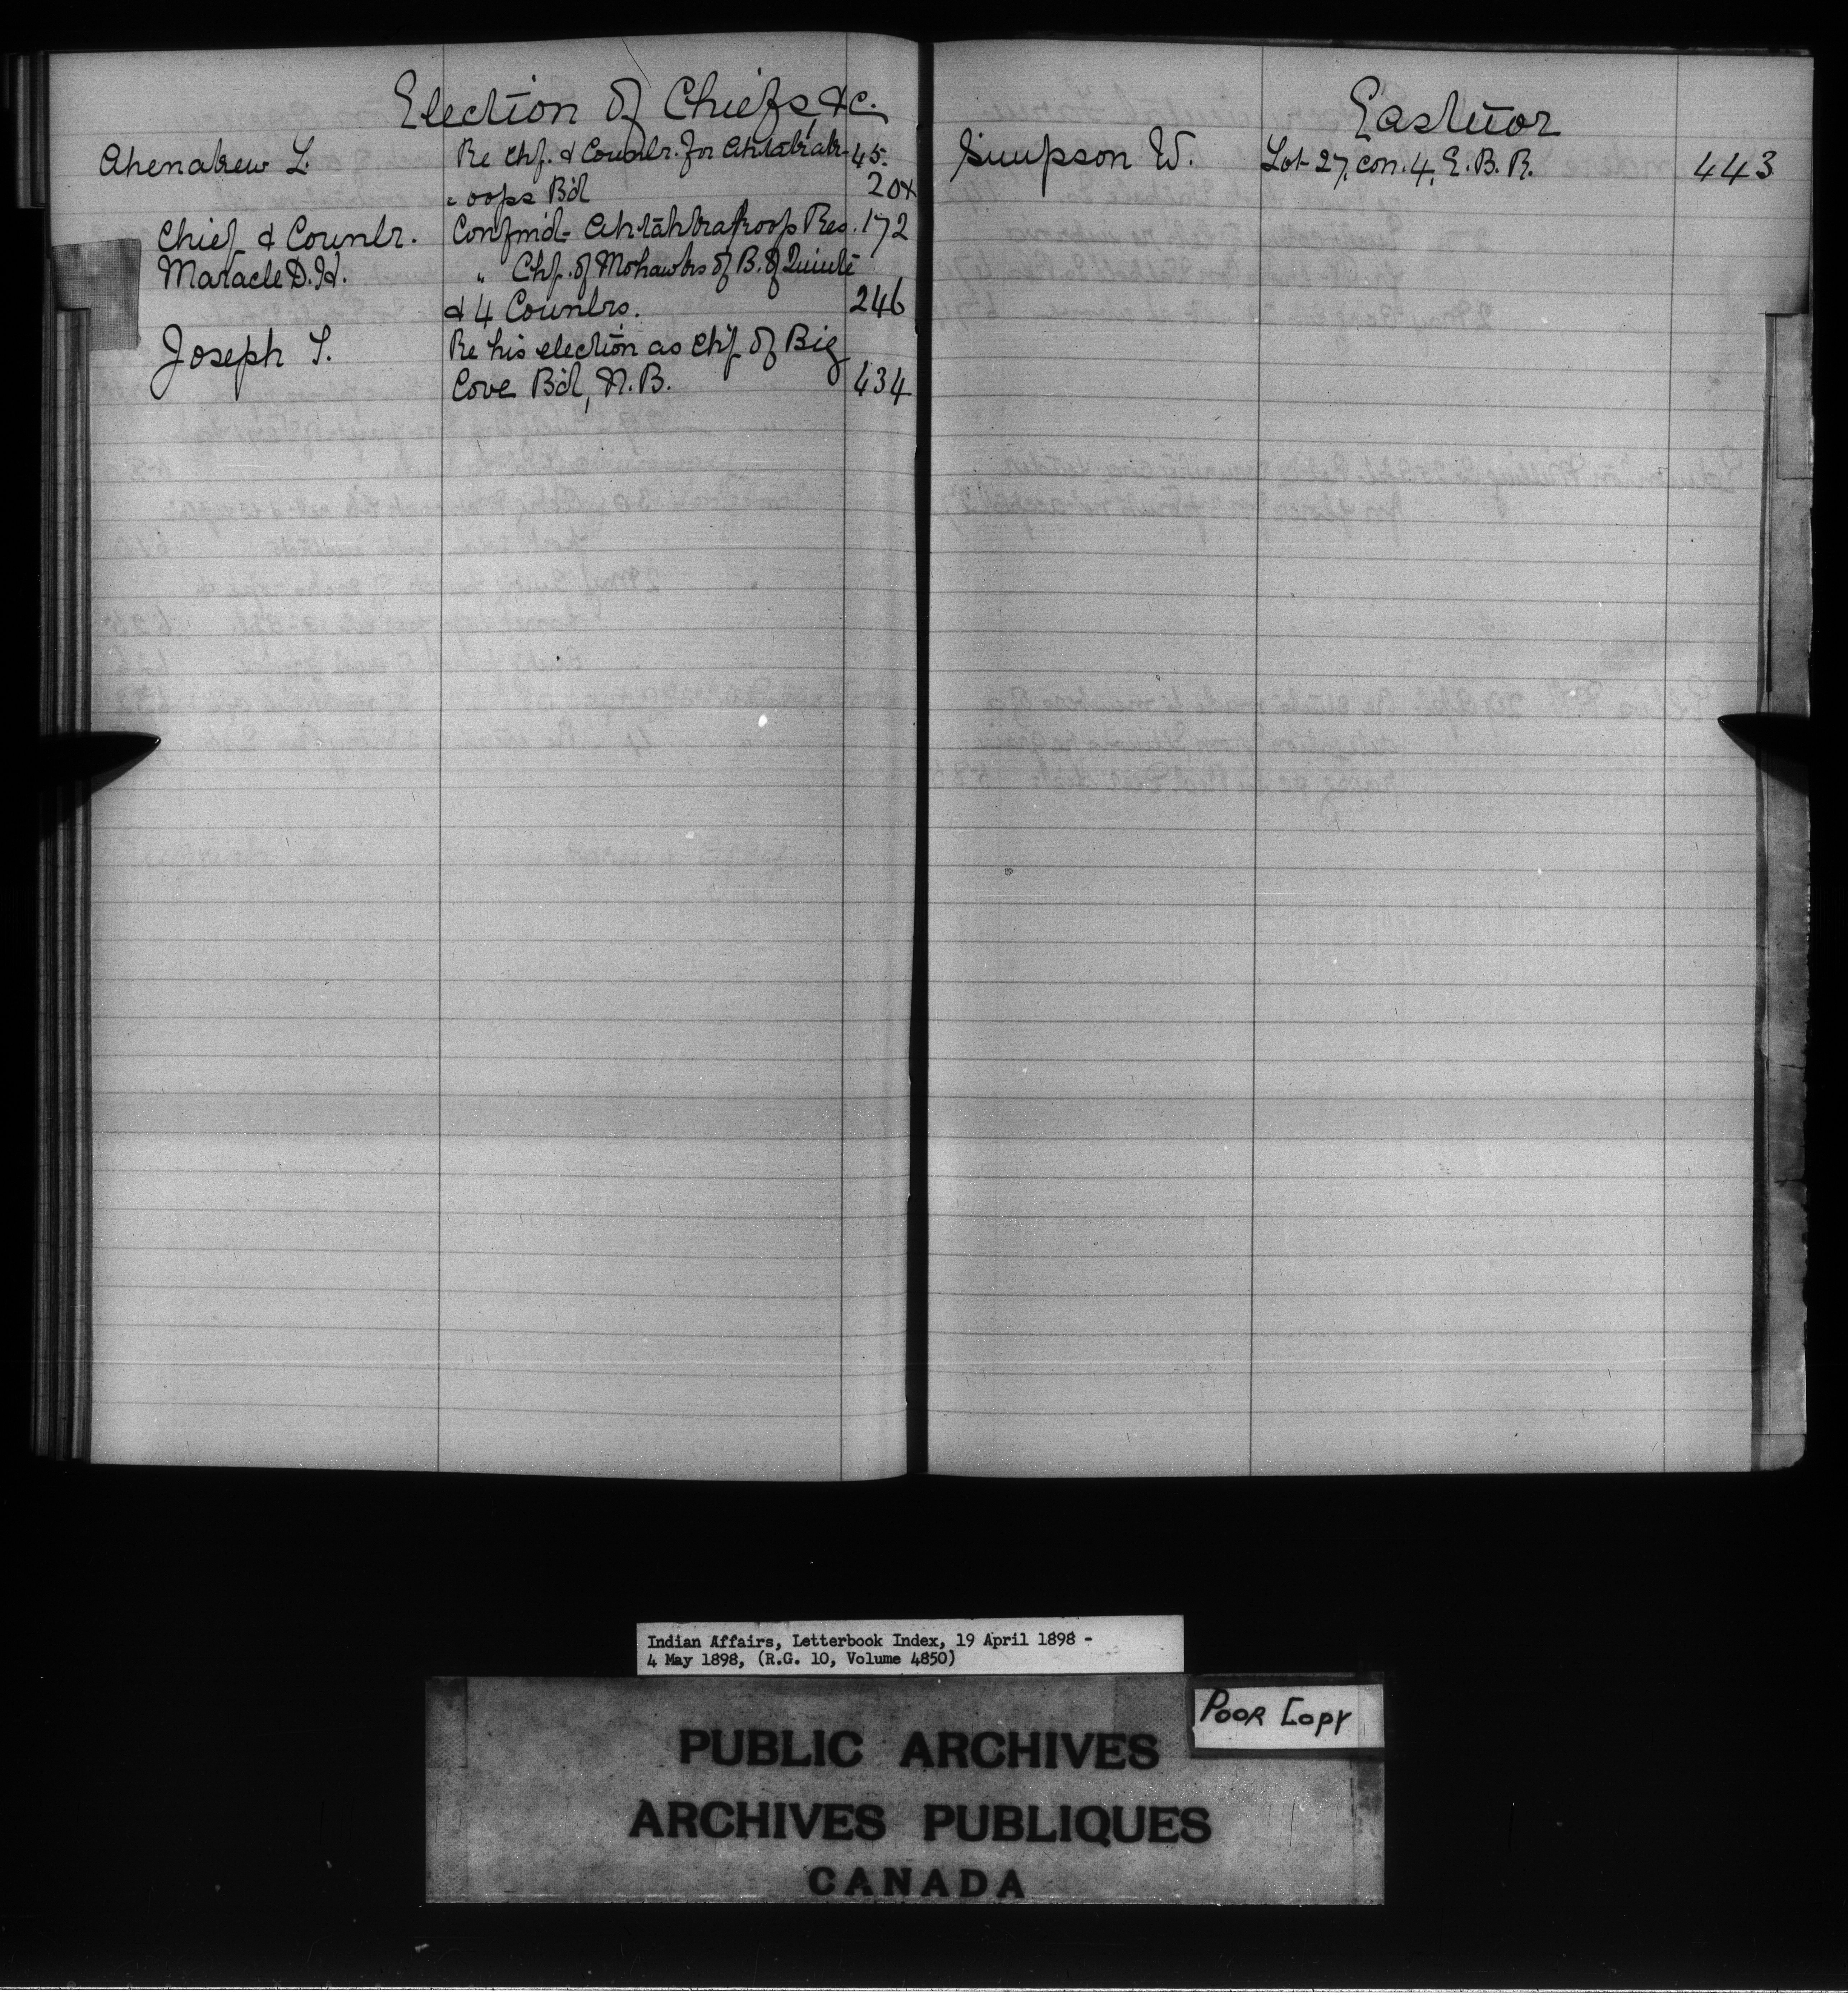 Election of Chiefs, &c.
Ahenakew L. Re Chf. & Counlr. for Ahtahkak- 45.
" oops B'd 204
Chief & Counlr. Confm'd- Ahtahkakoops Res. 172
Maracle D. H. " Chf. of Mohawks of B. of Quinte
& 4 Counlrs. 246
Joseph T. Re his election as Chf. of Big
Cove B'd, N.B. 434
Eastnor
Simpson W. Lot 27, con. 4, E. B. R. 443
Indian Affairs, Letterbook Index, 19 April 1898 -
4 May 1898, (R.G. 10, Volume 4850)
POOR COPY
PUBLIC ARCHIVES
ARCHIVES PUBLIQUES
CANADA